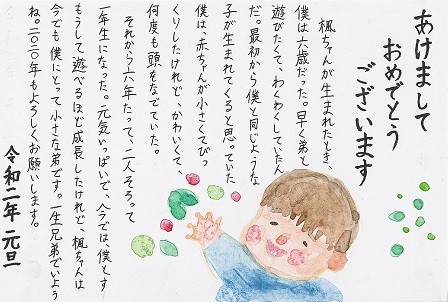 あけまして
おめでとう
ございます
楓ちゃんが生まれたとき、
僕は六歳だった。早く弟と
遊びたくて、わくわくしていたん
だ。最初から僕と同じような
子が生まれてくると思っていた
僕は、赤ちゃんが小さくてびっ
くりしたけれど、かわいくて、
何度も頭をなでていた。
それから六年たって、二人そろって
一年生になった。元気いっぱいで、今では、僕とす
もうして遊べるほど成長したけれど、楓ちゃんは
今でも僕にとって小さな弟です。一生兄弟でいよう
ね。二〇二〇年もよろしくお願いします。
令和二年 元旦